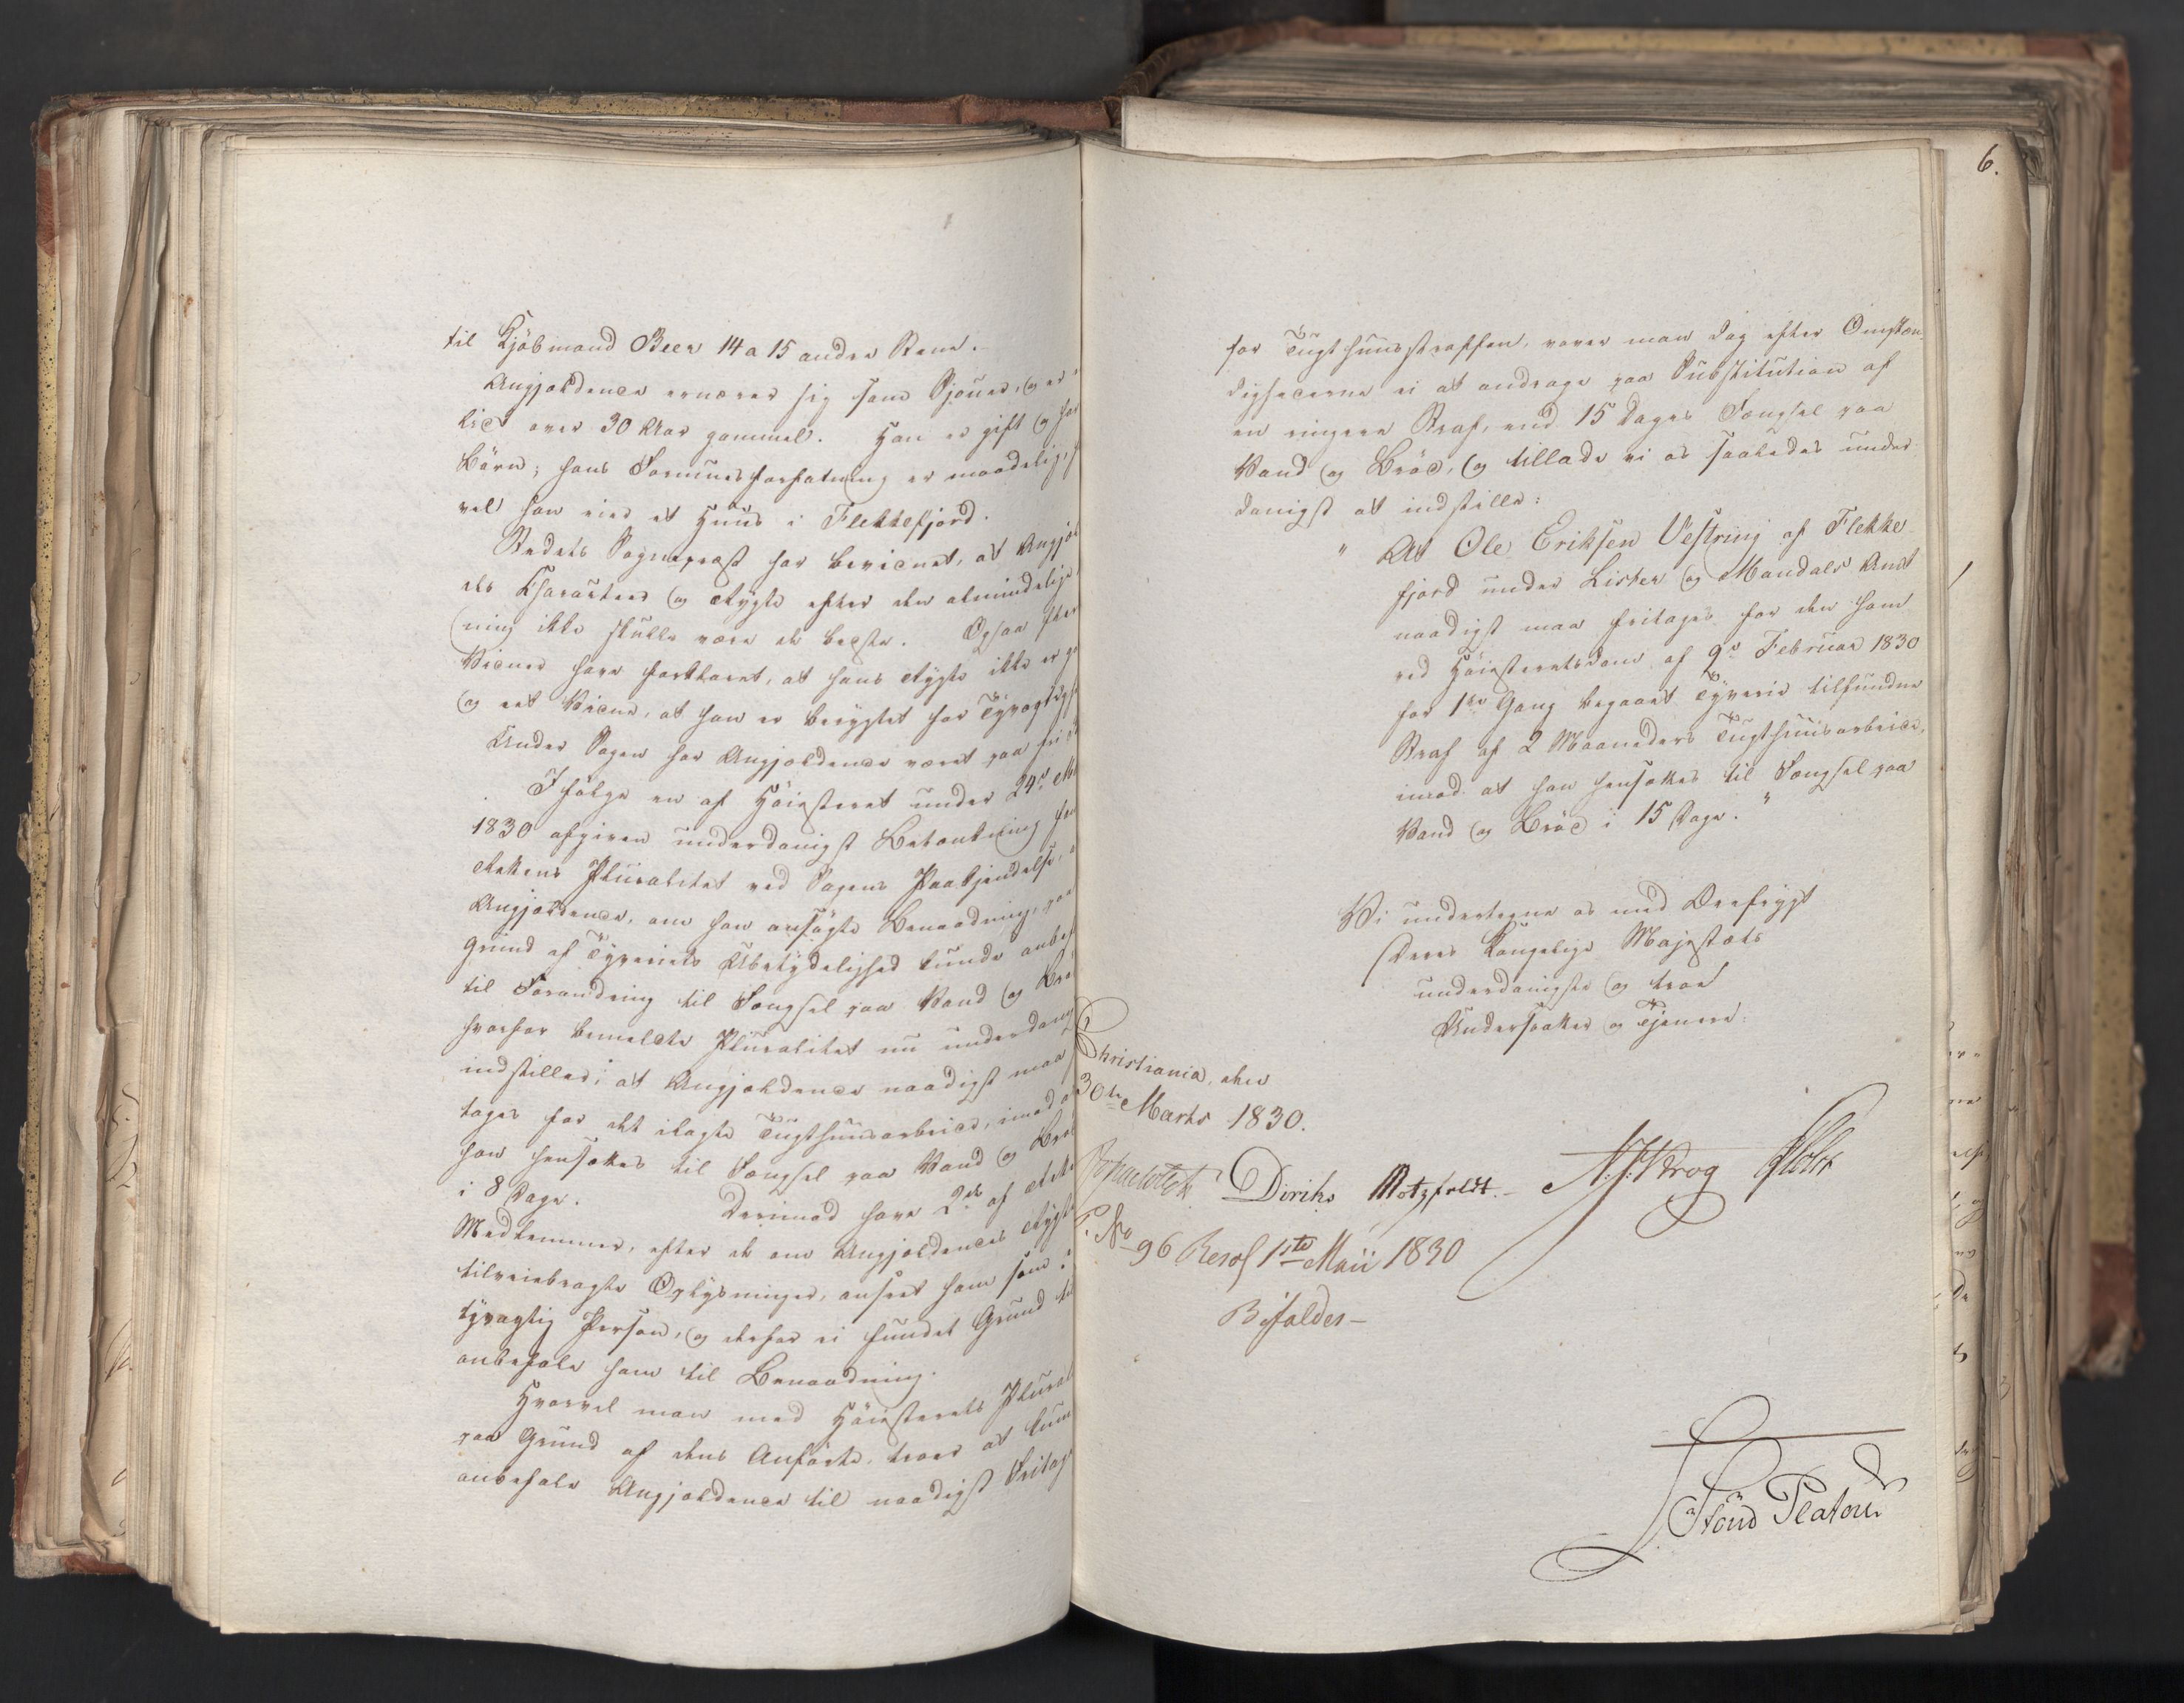 til Kjöbmand Beer 14 a 15 andre Steen.
Angjeldende ernærer sig som Sjöuer, og er
lidt over 30 Aar gammel. Han er gift og har
Börn; hans Formuesforfatning er maadelig,
vel han eier et Huus i Flekkefjord.
Stedets Sognepræst har bevidnet, at Angjel
des Charakteer og Rygte efter den almindelige
ning ikke skulle være de bedste. Ogsaa flere
Vidner have forklaret, at hans Rygte ikke er go
og eet Vidne, at han er berygtet for Tyvagtighe
Under Sagen har Angjeldende været paa fri
I fölge en af Höiesteret under 24de Ma
1830 afgiven underdanigst Betænkning
Rettens Pluralitet ved Sagens Paakjendelse,
Angjeldende, om han ansögte Benaadning, paa
Grund af Tyveriets Ubetydelighed kunde anbef
til Forandring til Fængsel paa Vand og Brö
hvorfor bemeldte Pluralitet nu underdanig
indstiller: at Angjeldende naadigst maa
tages for det ilagte Tugthuusarbeide, imod a
han hensættes til Fængsel paa Vand og Bröd
i 8 Dage. Derimod have 2de af Rette
Medlemmer, efter de om Angjeldendes Rygte
tilveiebragte Oplysninger, anseet ham som
tyvagtig Person, og derfor ei fundet Grund til
anbefale ham til Benaadning.
Hvorvel man med Höiesterets Plural
paa Grund af dens Anförte, troer at kun
anbefale Angjeldende til naadigst Fritag
6.
for Tugthuusstraffen, vover man dog efter Omstæn
dighederne ei at andrage paa Substitution af
en ringere Straf, end 15 Dages Fængsel paa
Vand og Bröd, og tillade vi os saaledes under
danigst at indstille:
" At Ole Eriksen Vestring af Flekke
fjord under Lister og Mandals Amt
naadigst maa fritages for den ham
ved Höiesteretsdom af 9de Februar 1830
for 1ste Gang begaaet Tyverie tilfundne
Straf af 2 Maaneders Tugthuusarbeide,
imod at han hensættes til Fængsel paa
Vand og Bröd i 15 Dage. "
Vi undertegne os med Ærefrygt
Deres Kongelige Majestæts
underdanigste og troe
Undersaatter og Tjenere
Christiania, den
30te Marts 1830.
Diriks Motzfeldt. N. J. Krog Holst
P. No 96 Resol 1ste Maii 1830
Bifaldes -
Stoud Platou